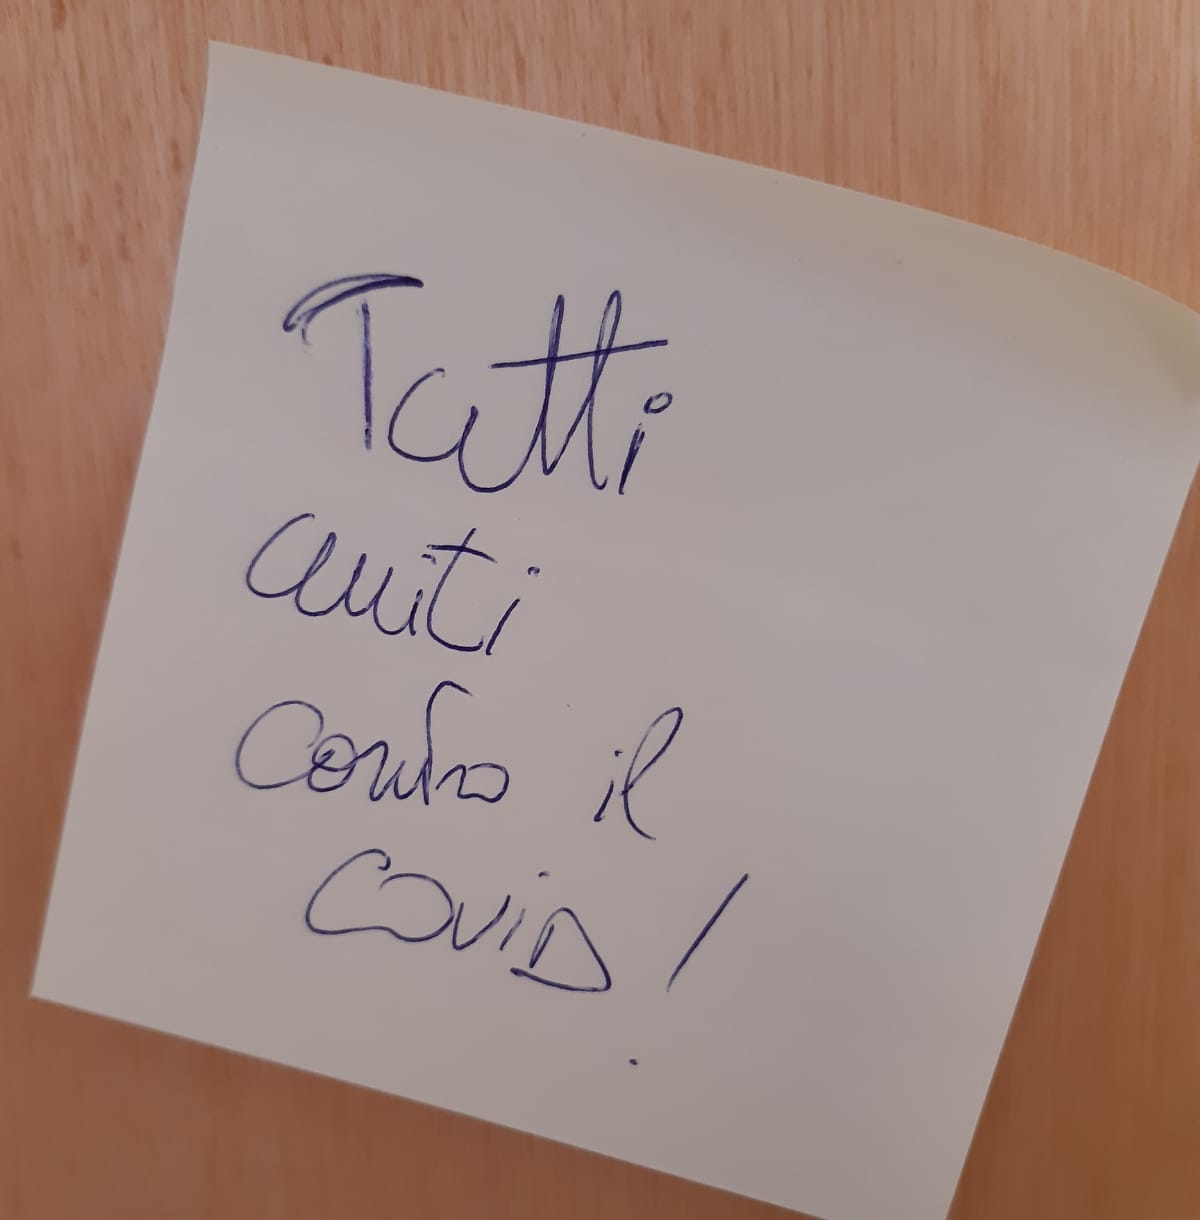 Tutti
uniti
contro il
COVID!